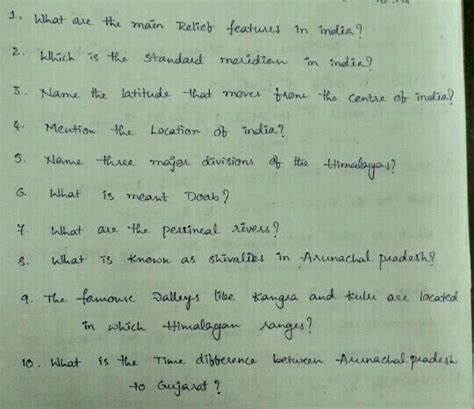 1. What are the main Relief features in india?
2. Which is the Standard meridian in india?
3. Name the latitude that moves from the centre of india?
4. Mention the Location of india?
5. Name three major divisions of the Himalayas?
6. What is meant Doab?
7. What are the perineal rivers?
8. What is Known as Shivaliks in Arunachal pradesh?
9. The famouse Valleys like Kangra and Kulu are located
in which Himalayan ranges?
10. What is the Time difference between Arunachal pradesh
to Gujarat?